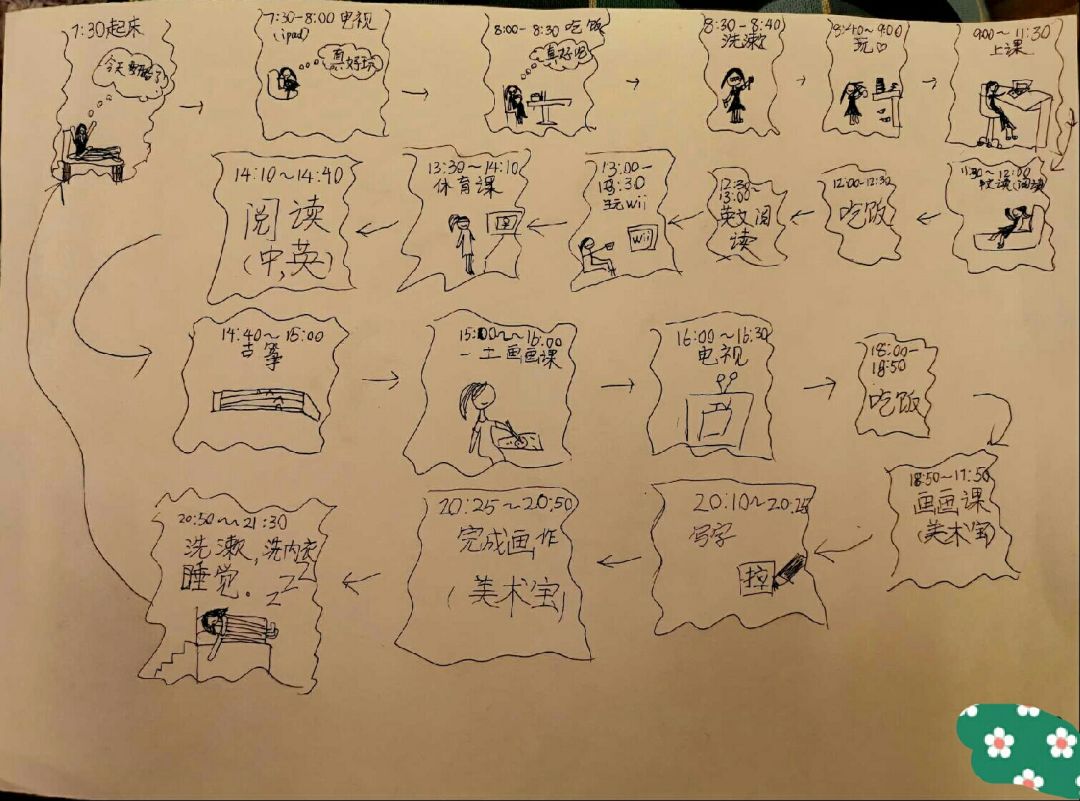 7:30起床
7:30-8:00 电视
(ipad)
真好玩
8:00-8:30 吃饭
真好吃
8:30-8:40
洗漱
8:40~9:00
玩♡
9:00~11:30
上课
11:30~12:00
12:00-12:30
吃饭
12:30-
13:00
英文阅
读
13:00-
13:30
玩wii
wii
13:30~14:10
体育课
14:10~14:40
阅读
(中,英)
14:40~15:00
古筝
15:00~16:00
一土画画课
16:00~16:30
电视
18:00-
18:50
吃饭
18:50~19:50
画画课
(美术宝)
20:10~20:25
写字
20:25~20:50
完成画作
(美术宝)
20:50~21:30
洗漱,洗内衣
睡觉.zzz